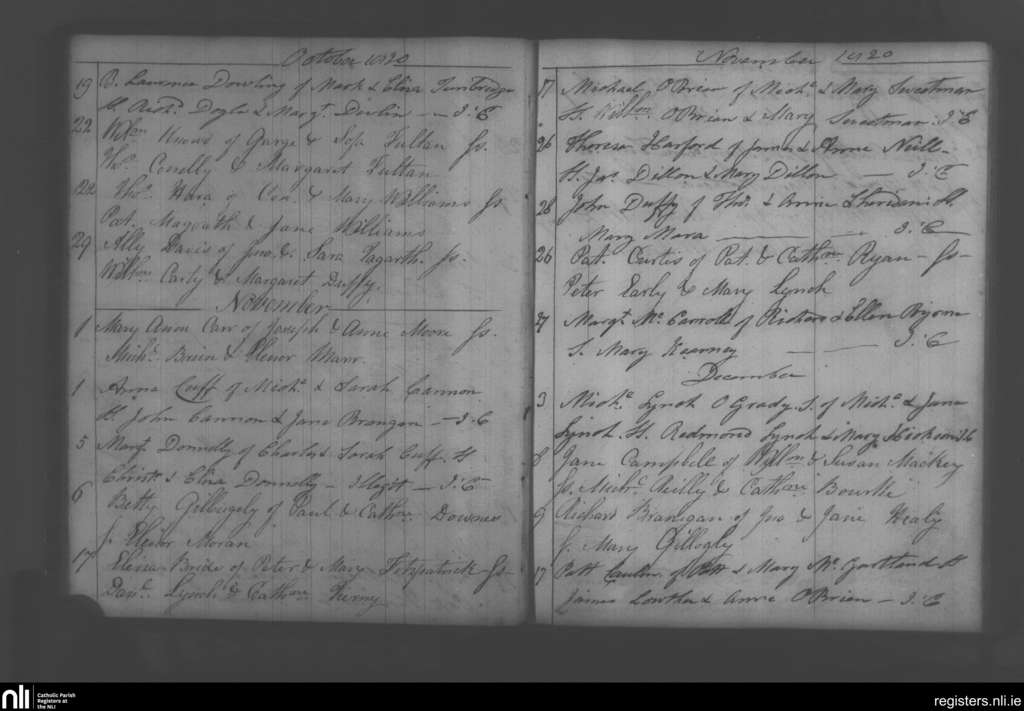 October 1820
19 B. Lawrence Dowling of Mark & Eliza
Richd. Doyle & Margt. Devlin - J. C
22 Willm. of & Fultan Ss.
Thos. Conolly & Margaret Fultan
Thos. Hara of Con. & Mary Williams Ss.
Pat. & Jane Williams
29 Ally Davis of Jno. & Sara Ss.
Willm. Carly & Margaret Duffy.
November
1 Mary Anne Carr of Joseph & Anne Moore Ss.
Michl. Brien & Elenor
1 Anne Cuff of Michl. & Sarah Cannon
St. John Cannon & Jane Brangan - J. C
5 Margt. Donnelly of Charles & Sarah Cuff. St
Christr. & Eliza Donnelly - Illegit - J. C
6 Betty of Paul & Cathne. Downes
S. Elenor Moran
17 Bride of Peter & Mary Fitzpatrick Ss-
Danl. Lynch & Cathne.
November 1820
17 Michael O'Brien of Michl. & Mary Sweetman
St. Willm. O'Brian & Mary Sweetman. J. C
26 Theresa Harford of James & Anne Neill -
St. Jas. Dillon & Mary Dillon - J. C
26 John Duffy of Thos. & Annie
Mary Mara - J. C
26 Pat. Curtis of Pat. & Cathne. Ryan - Ss-
Peter Early & Mary Lynch
Margt. Mc. Carroll of Richard & Ellen
S. Mary Kearney - J. C
December
3 Michl. Lynch O'Grady. S. of Michl. & Jane
Lynch. St. Redmond Lynch & Mary J. C
8 Jane Campbell of Willm. & Susan Mackey
Ss. Michl. Reilly & Cathne. Bourke
9 Richard Branigan of Jno & Jane Healy
S. Mary Gillogly
17 Patt of Patt & Mary Mc. Gartland St
James Lowther & Anne O'Brien - J. C
nli
Catholic Parish
Registers at
the NLI
registers.nli.ie